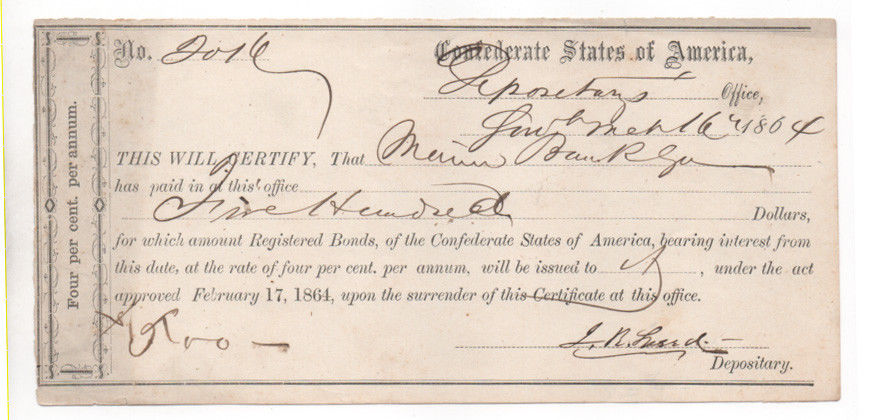 No. 2016 Confederate States of America,
Depositary's Office,
16 1864
THIS WILL CERTIFY, That Bank
has paid in at this office
Five Hundred Dollars,
for which amount Registered Bonds, of the Confederate States of America, bearing interest from
this date, at the rate of four per cent. per annum, will be issued to it, under the act
approved February 17, 1864, upon the surrender of this Certificate at this office.
$500 —
Depositary.
Four per cent. per annum.